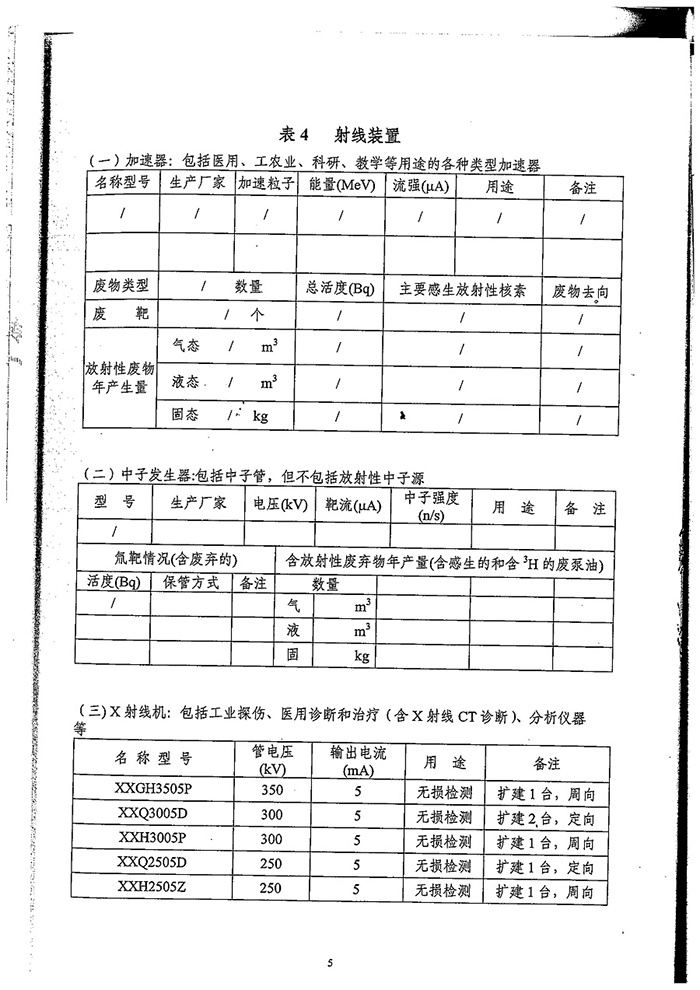 表4 射线装置
(一)加速器：包括医用、工农业、科研、教学等用途的各种类型加速器
名称型号 生产厂家 加速粒子 能量(MeV) 流强(μA) 用途 备注
/ / / / / / /
废物类型 / 数量 总活度(Bq) 主要感生放射性核素 废物去向。
废 靶 / 个 / / /
放射性废物
年产生量
气态 / m³ / / /
液态 / m³ / / /
固态 / kg / / /
(二)中子发生器:包括中子管，但不包括放射性中子源
型 号 生产厂家 电压(kV) 靶流(μA) 中子强度
(n/s) 用 途 备 注
/
氚靶情况(含废弃的) 含放射性废弃物年产量(含感生的和含³H的废泵油)
活度(Bq) 保管方式 备注 数量
/ 气 m³
液 m³
固 kg
(三)X射线机：包括工业探伤、医用诊断和治疗（含X射线CT诊断）、分析仪器
等
名 称 型 号 管电压
(kV) 输出电流
(mA) 用 途 备注
XXGH3505P 350 5 无损检测 扩建1台，周向
XXQ3005D 300 5 无损检测 扩建2台，定向
XXH3005P 300 5 无损检测 扩建1台，周向
XXQ2505D 250 5 无损检测 扩建1台，定向
XXH2505Z 250 5 无损检测 扩建1台，周向
5